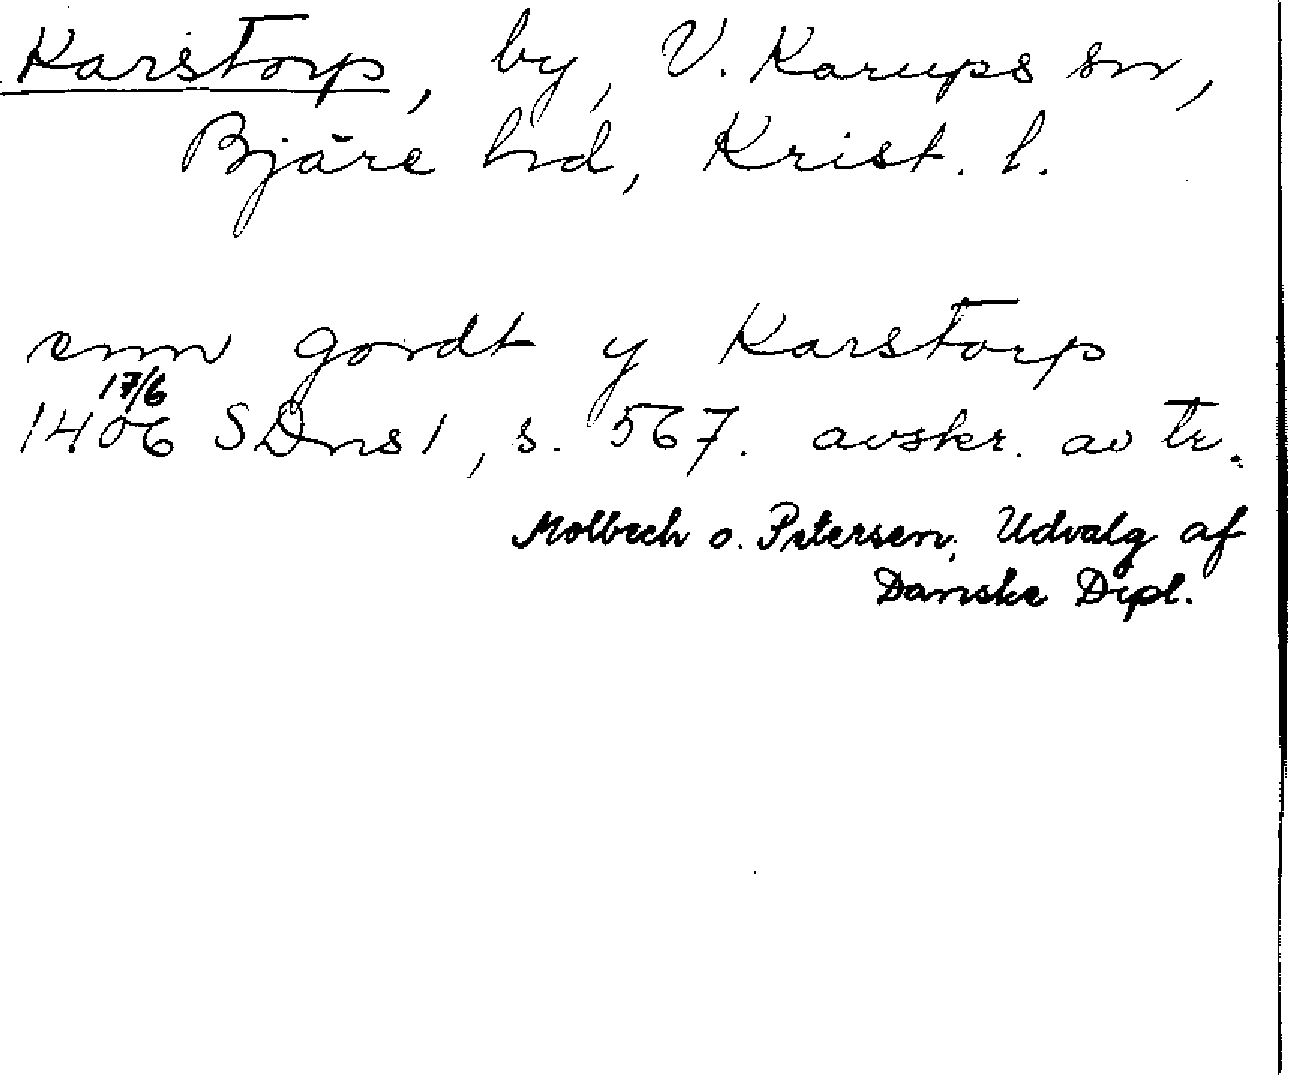 Karstorp, by, V. Karups sn,
Bjäre hd, Krist. l.
enn gordt y Karstorp
17/6
1406 SDns 1, s. 567. avskr. av tr.
Molbech o. Petersen, Udvalg af
Danske Dipl.